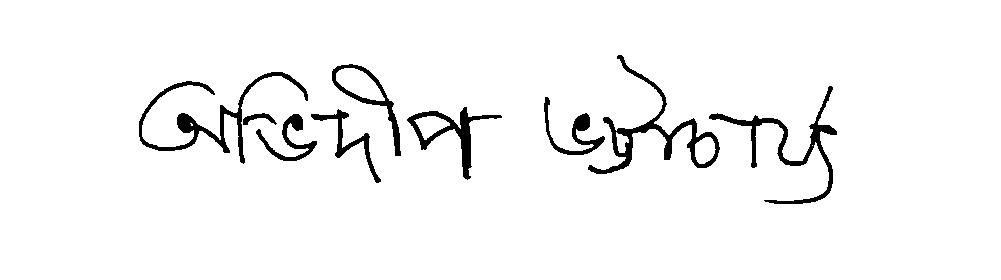 অভিদীপ ভট্টাচার্য্য